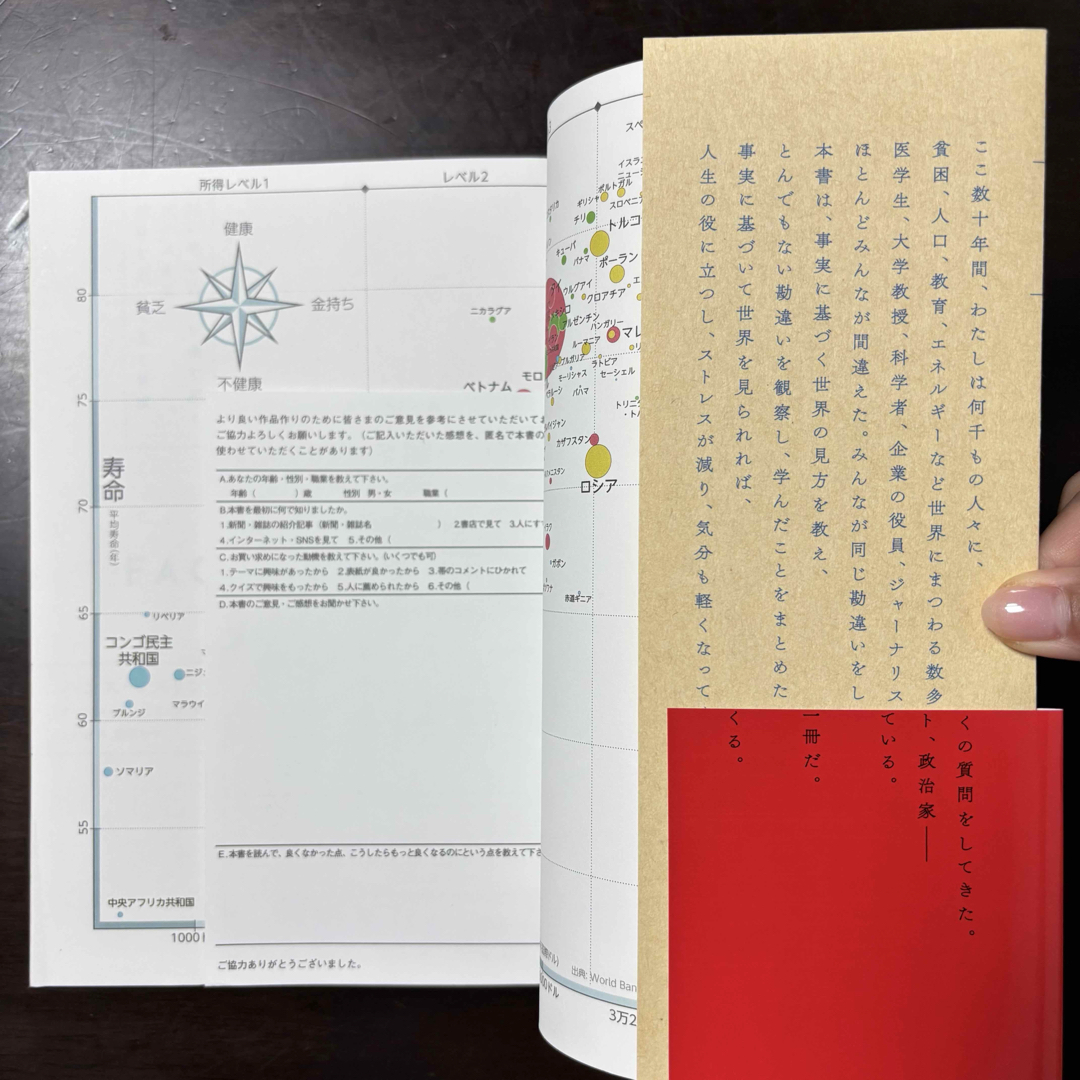 所得レベル1
レベル2
健康
貧乏
金持ち
不健康
80
75
70
65
60
55
寿命
平均寿命(年)
ニカラグア
ベトナム
モロ
リベリア
コンゴ民主
共和国
ニジ
マラウイ
ブルンジ
ソマリア
中央アフリカ共和国
1000
より良い作品作りのために皆さまのご意見を参考にさせていただいてお
ご協力よろしくお願いします。(ご記入いただいた感想を、匿名で本書の
使わせていただくことがあります)
A.あなたの年齢・性別・職業を教えて下さい。
年齢( )歳 性別 男・女 職業(
B.本書を最初に何で知りましたか。
1.新聞・雑誌の紹介記事(新聞・雑誌名 ) 2.書店で見て 3.人にす
4.インターネット・SNSを見て 5.その他(
C.お買い求めになった動機を教えて下さい。(いくつでも可)
1.テーマに興味があったから 2.表紙が良かったから 3.帯のコメントにひかれて
4.クイズで興味をもったから 5.人に薦められたから 6.その他(
D.本書のご意見・ご感想をお聞かせ下さい。
E.本書を読んで、良くなかった点、こうしたらもっと良くなるのにという点を教えて下さ
ご協力ありがとうございました。
スペ
イスラ
ニュー
ポルトガル
ギリシャ
スロベニ
チリ
トルコ
キューバ
パナマ
ポーラン
ウルグアイ
クロアチア
エ
アルゼンチン
ハンガリー
マレ
ルーマニア
ブルガリア
ラトビア
モーリシャス
セーシェル
バハマ
トリニ
・ト
カザフスタン
ロシア
ガボン
赤道ギニア
出典: World Ban
3万2
ここ数十年間、わたしは何千もの人々に、
貧困、人口、教育、エネルギーなど世界にまつわる数多くの質問をしてきた。
医学生、大学教授、科学者、企業の役員、ジャーナリスト、政治家──
ほとんどみんなが間違えた。みんなが同じ勘違いをしている。
本書は、事実に基づく世界の見方を教え、
とんでもない勘違いを観察し、学んだことをまとめた一冊だ。
事実に基づいて世界を見られれば、
人生の役に立つし、ストレスが減り、気分も軽くなってくる。